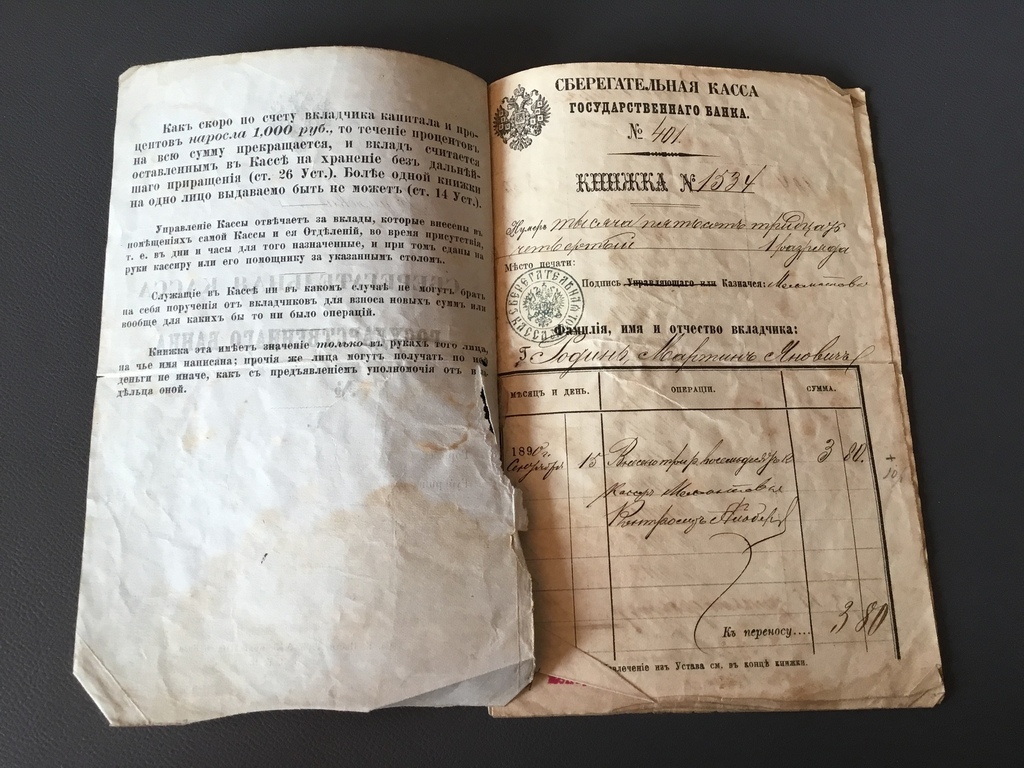 Какъ скоро по счету вкладчика капитала и про-
центовъ наросла 1,000 руб., то теченіе процентовъ
на всю сумму прекращается, и вкладъ считается
оставленнымъ въ Кассѣ на храненіе безъ дальнѣй-
шаго приращенія (ст. 26 Уст.). Болѣе одной книжки
на одно лицо выдаваемо быть не можетъ (ст. 14 Уст.).
Управленіе Кассы отвѣчаетъ за вклады, которые внесены въ
помѣщеніяхъ самой Кассы и ея Отдѣленій, во время присутствія,
т. е. въ дни и часы для того назначенные, и при томъ сданы на
руки кассиру или его помощнику за указаннымъ столомъ.
Служащіе въ Кассѣ ни въ какомъ случаѣ не могутъ брать
на себя порученія отъ вкладчиковъ для взноса новыхъ суммъ или
вообще для какихъ бы то ни было операцій.
Книжка эта имѣетъ значеніе только въ рукахъ того лица,
на чье имя написана; прочія же лица могутъ получать по ней
деньги не иначе, какъ съ предъявленіемъ уполномочія отъ вла-
дѣльца оной.
СБЕРЕГАТЕЛЬНАЯ КАССА
ГОСУДАРСТВЕННАГО БАНКА.
№ 401.
КНИЖКА № 1534
Нумеръ тысяча пятьсотъ тридцать
четвертый 1 разряда
Мѣсто печати:
Подпись Управляющаго или Казначея:
Фамилія, имя и отчество вкладчика:
Г. Годинъ Мартинъ Яновичъ
МѢСЯЦЪ И ДЕНЬ. ОПЕРАЦІИ. СУММА.
1890 г.
Сентября 15 три р. восемьдесятъ к 3 80.
Кассиръ
Контролеръ
Къ переносу.... 3 80
влеченіе изъ Устава см. въ концѣ книжки.